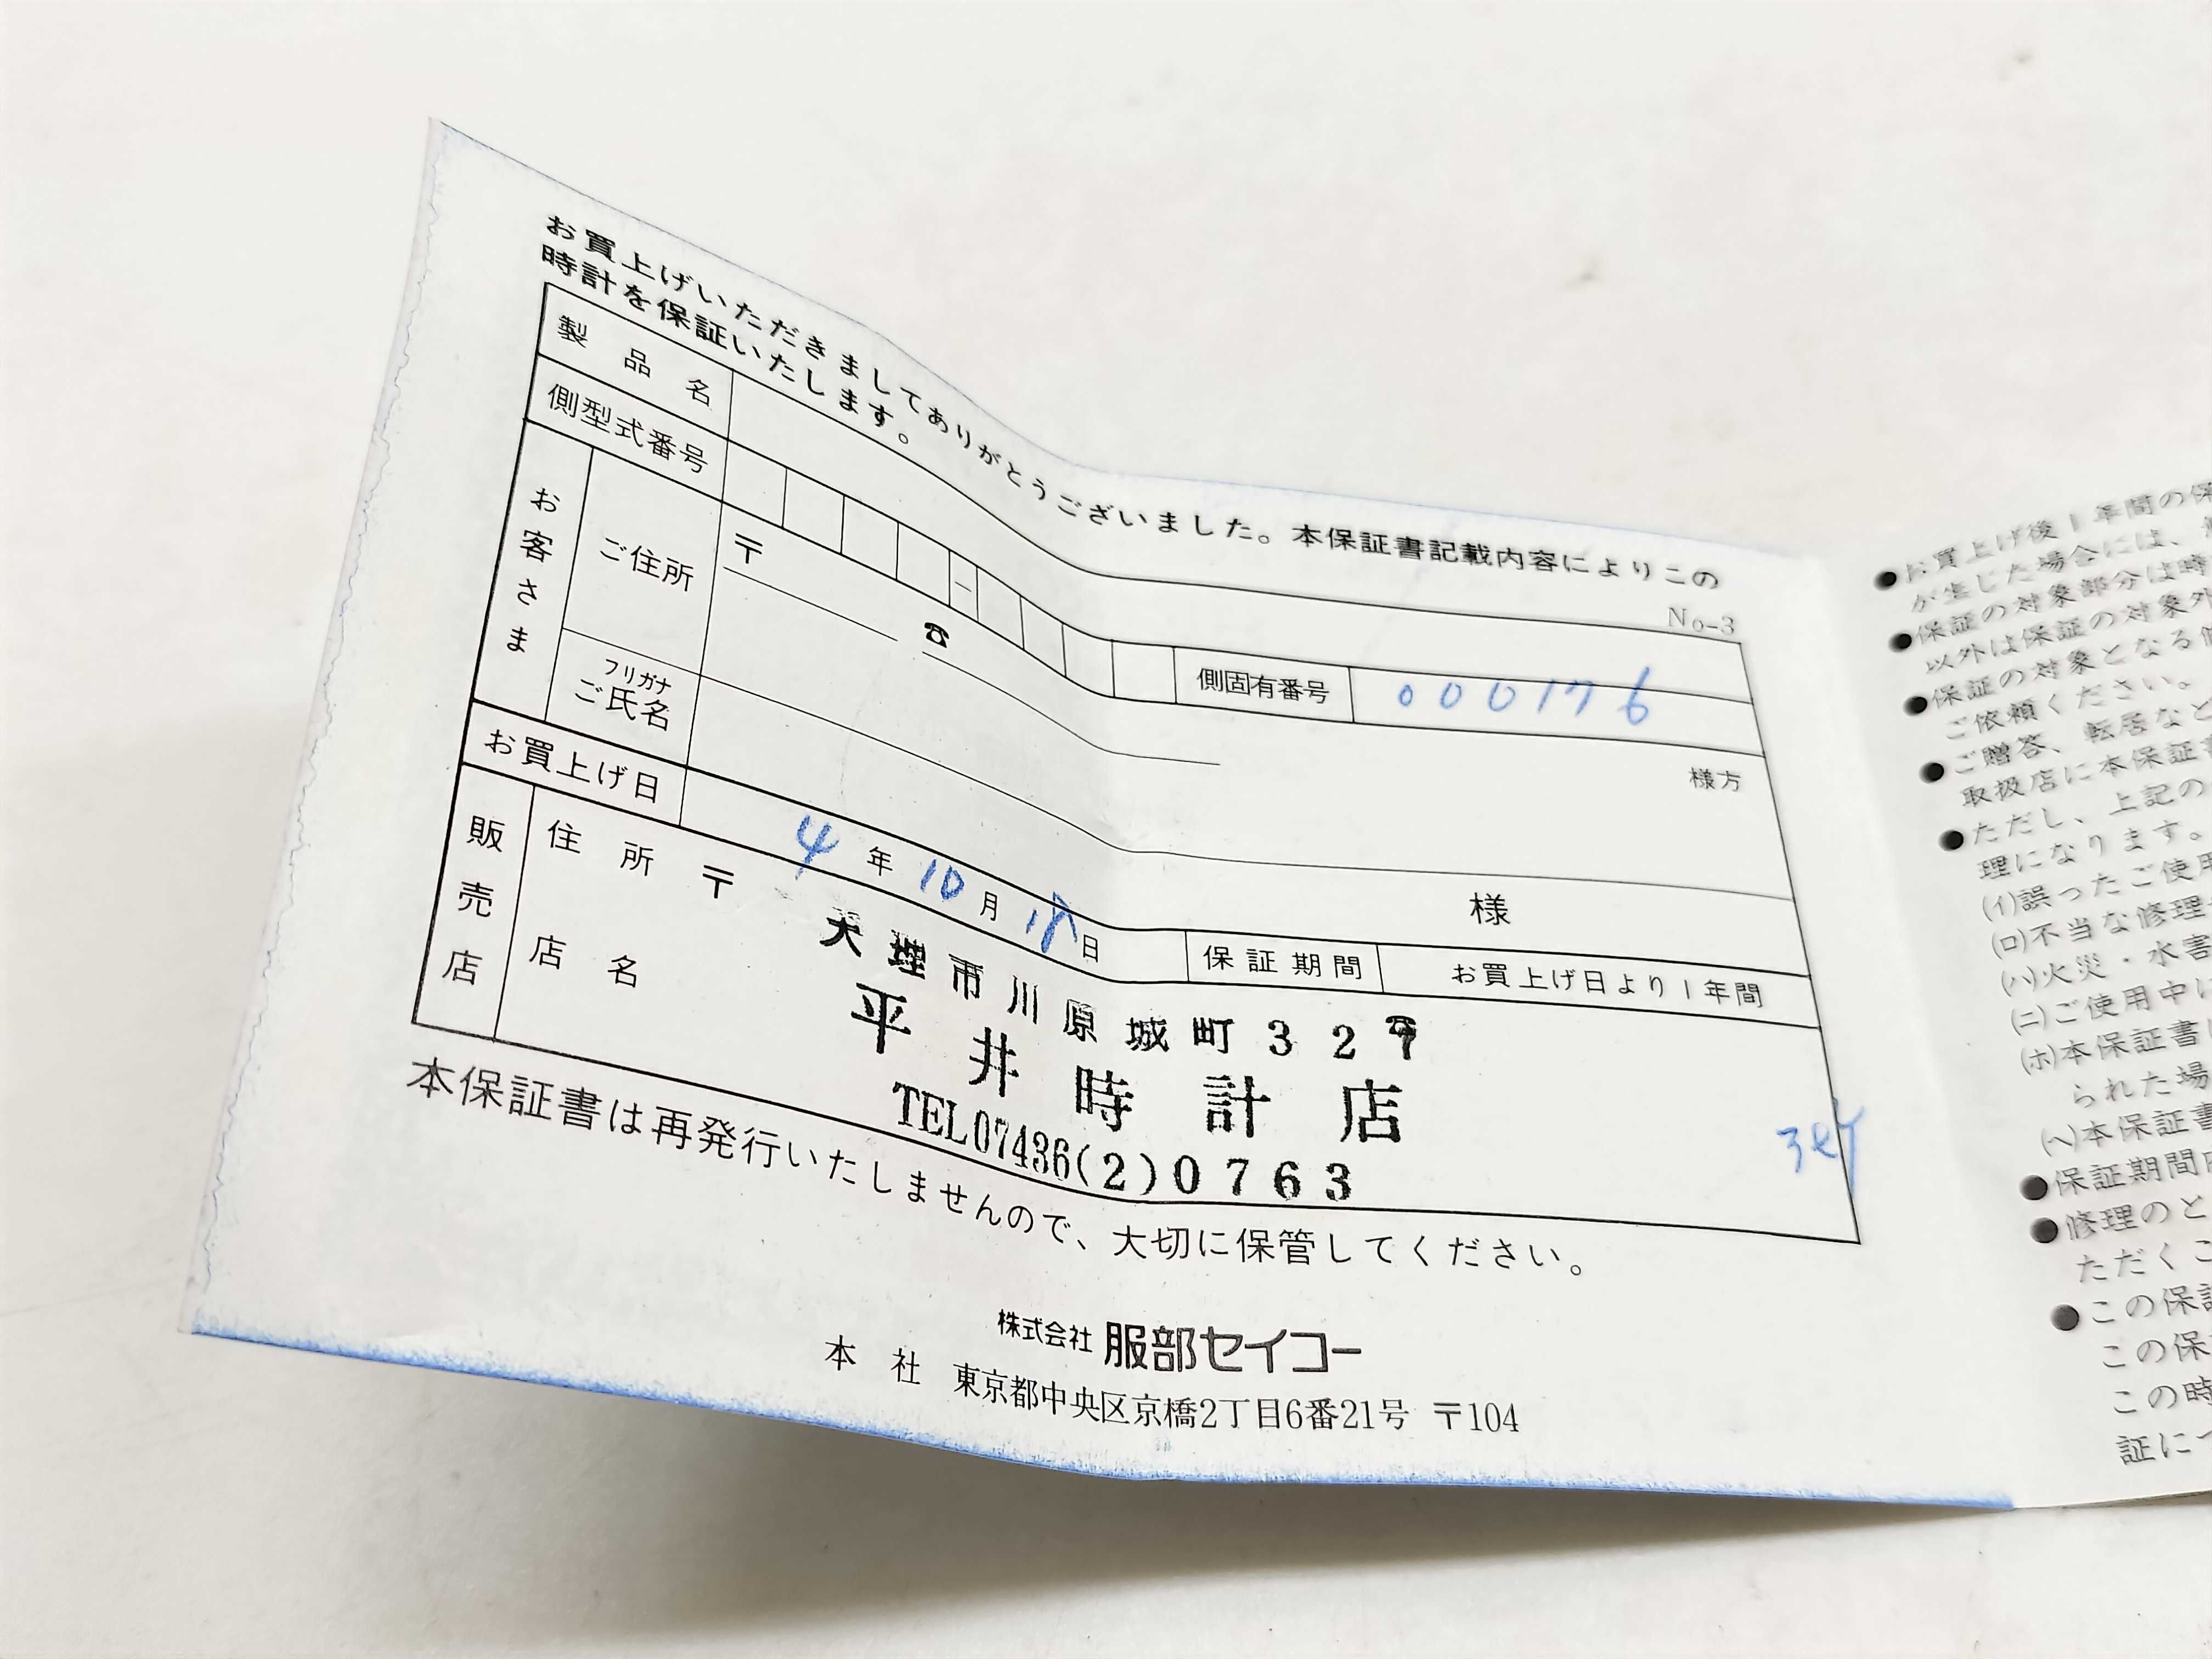 お買上げいただきましてありがとうございました。本保証書記載内容によりこの
時計を保証いたします。
No-3
製品名
側型式番号
-
側固有番号
000176
お客さま
ご住所
〒
☎
様方
フリガナ
ご氏名
様
お買上げ日
4年10月18日
保証期間
お買上げ日より1年間
販売店
住所 〒
市川原城町32
店名
平井時計店
TEL07436(2)0763
本保証書は再発行いたしませんので、大切に保管してください。
株式会社 服部セイコー
本社 東京都中央区京橋2丁目6番21号 〒104
●お買上げ後1年間の保
が生じた場合には、
●保証の対象部分は時
以外は保証の対象外
●保証の対象となる
ご依頼ください。
●ご贈答、転居など
取扱店に本保証
●ただし、上記の
理になります。
(イ)誤ったご使用
(ロ)不当な修理
(ハ)火災・水害
(ニ)ご使用中に
(ホ)本保証書
られた場
(ヘ)本保証書
●保証期間
●修理のと
ただくこ
●この保証
この保
この時
証につ